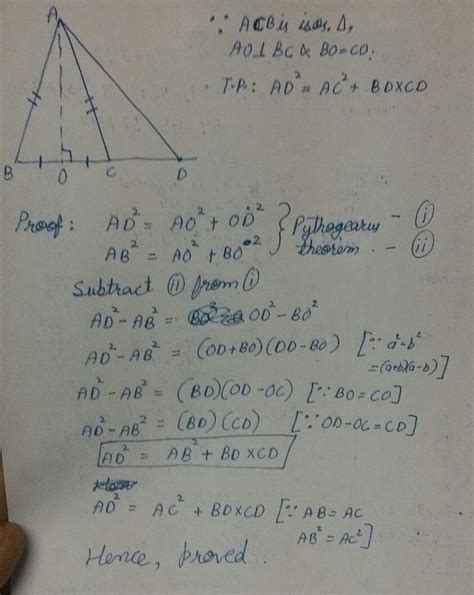 A
B O C D
∵ ACB is isos. Δ,
AO⊥BC & BO=CO.
T.P.: AD² = AC² + BD×CD
Proof: AD² = AO² + OD² } Pythogearus - (i)
AB² = AO² + BO² theorem. - (ii)
Subtract (ii) from (i)
AD²-AB² = OD²-BO²
AD²-AB² = (OD+BO)(OD-BO) [∵ a²-b²
=(a+b)(a-b)]
AD²-AB² = (BD)(OD-OC) [∵ BO=CO]
AD²-AB² = (BD)(CD) [∵ OD-OC=CD]
AD² = AB² + BD×CD
AD² = AC² + BD×CD [∵ AB=AC
AB²=AC²]
Hence, proved.